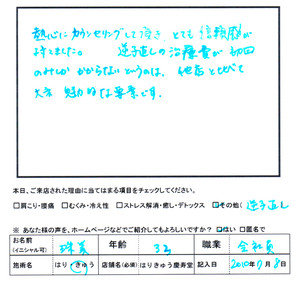 熱心にカウンセリングして頂き、とても信頼感が
持てました。 逆子直しの治療費が初回
のみしか かからないというのは、他店と比べて
大変 魅力的な要素です。
本日、ご来店された理由に当てはまる項目をチェックしてください。
□肩こり・腰痛 □むくみ・冷え性 □ストレス解消・癒し・デトックス ☑その他( 逆子直し
※ あなた様の声を、ホームページなどでご紹介してもよろしいですか? ☑はい □匿名で
お名前 (イニシャル可) 年齢 32 職業 会社員
施術名 はり きゅう 店舗名(必須) はりきゅう慶寿堂 記入日 2010年9月8日